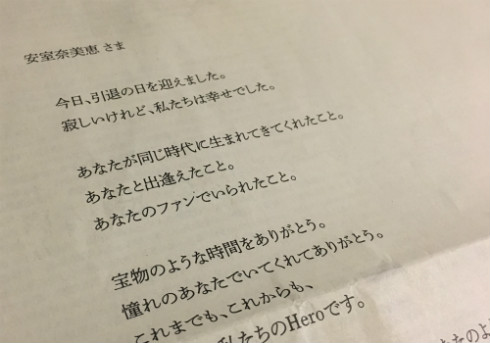 安室奈美恵 さま
今日、引退の日を迎えました。
寂しいけれど、私たちは幸せでした。
あなたが同じ時代に生まれてきてくれたこと。
あなたと出逢えたこと。
あなたのファンでいられたこと。
宝物のような時間をありがとう。
憧れのあなたでいてくれてありがとう。
これまでも、これからも、
私たちのHeroです。